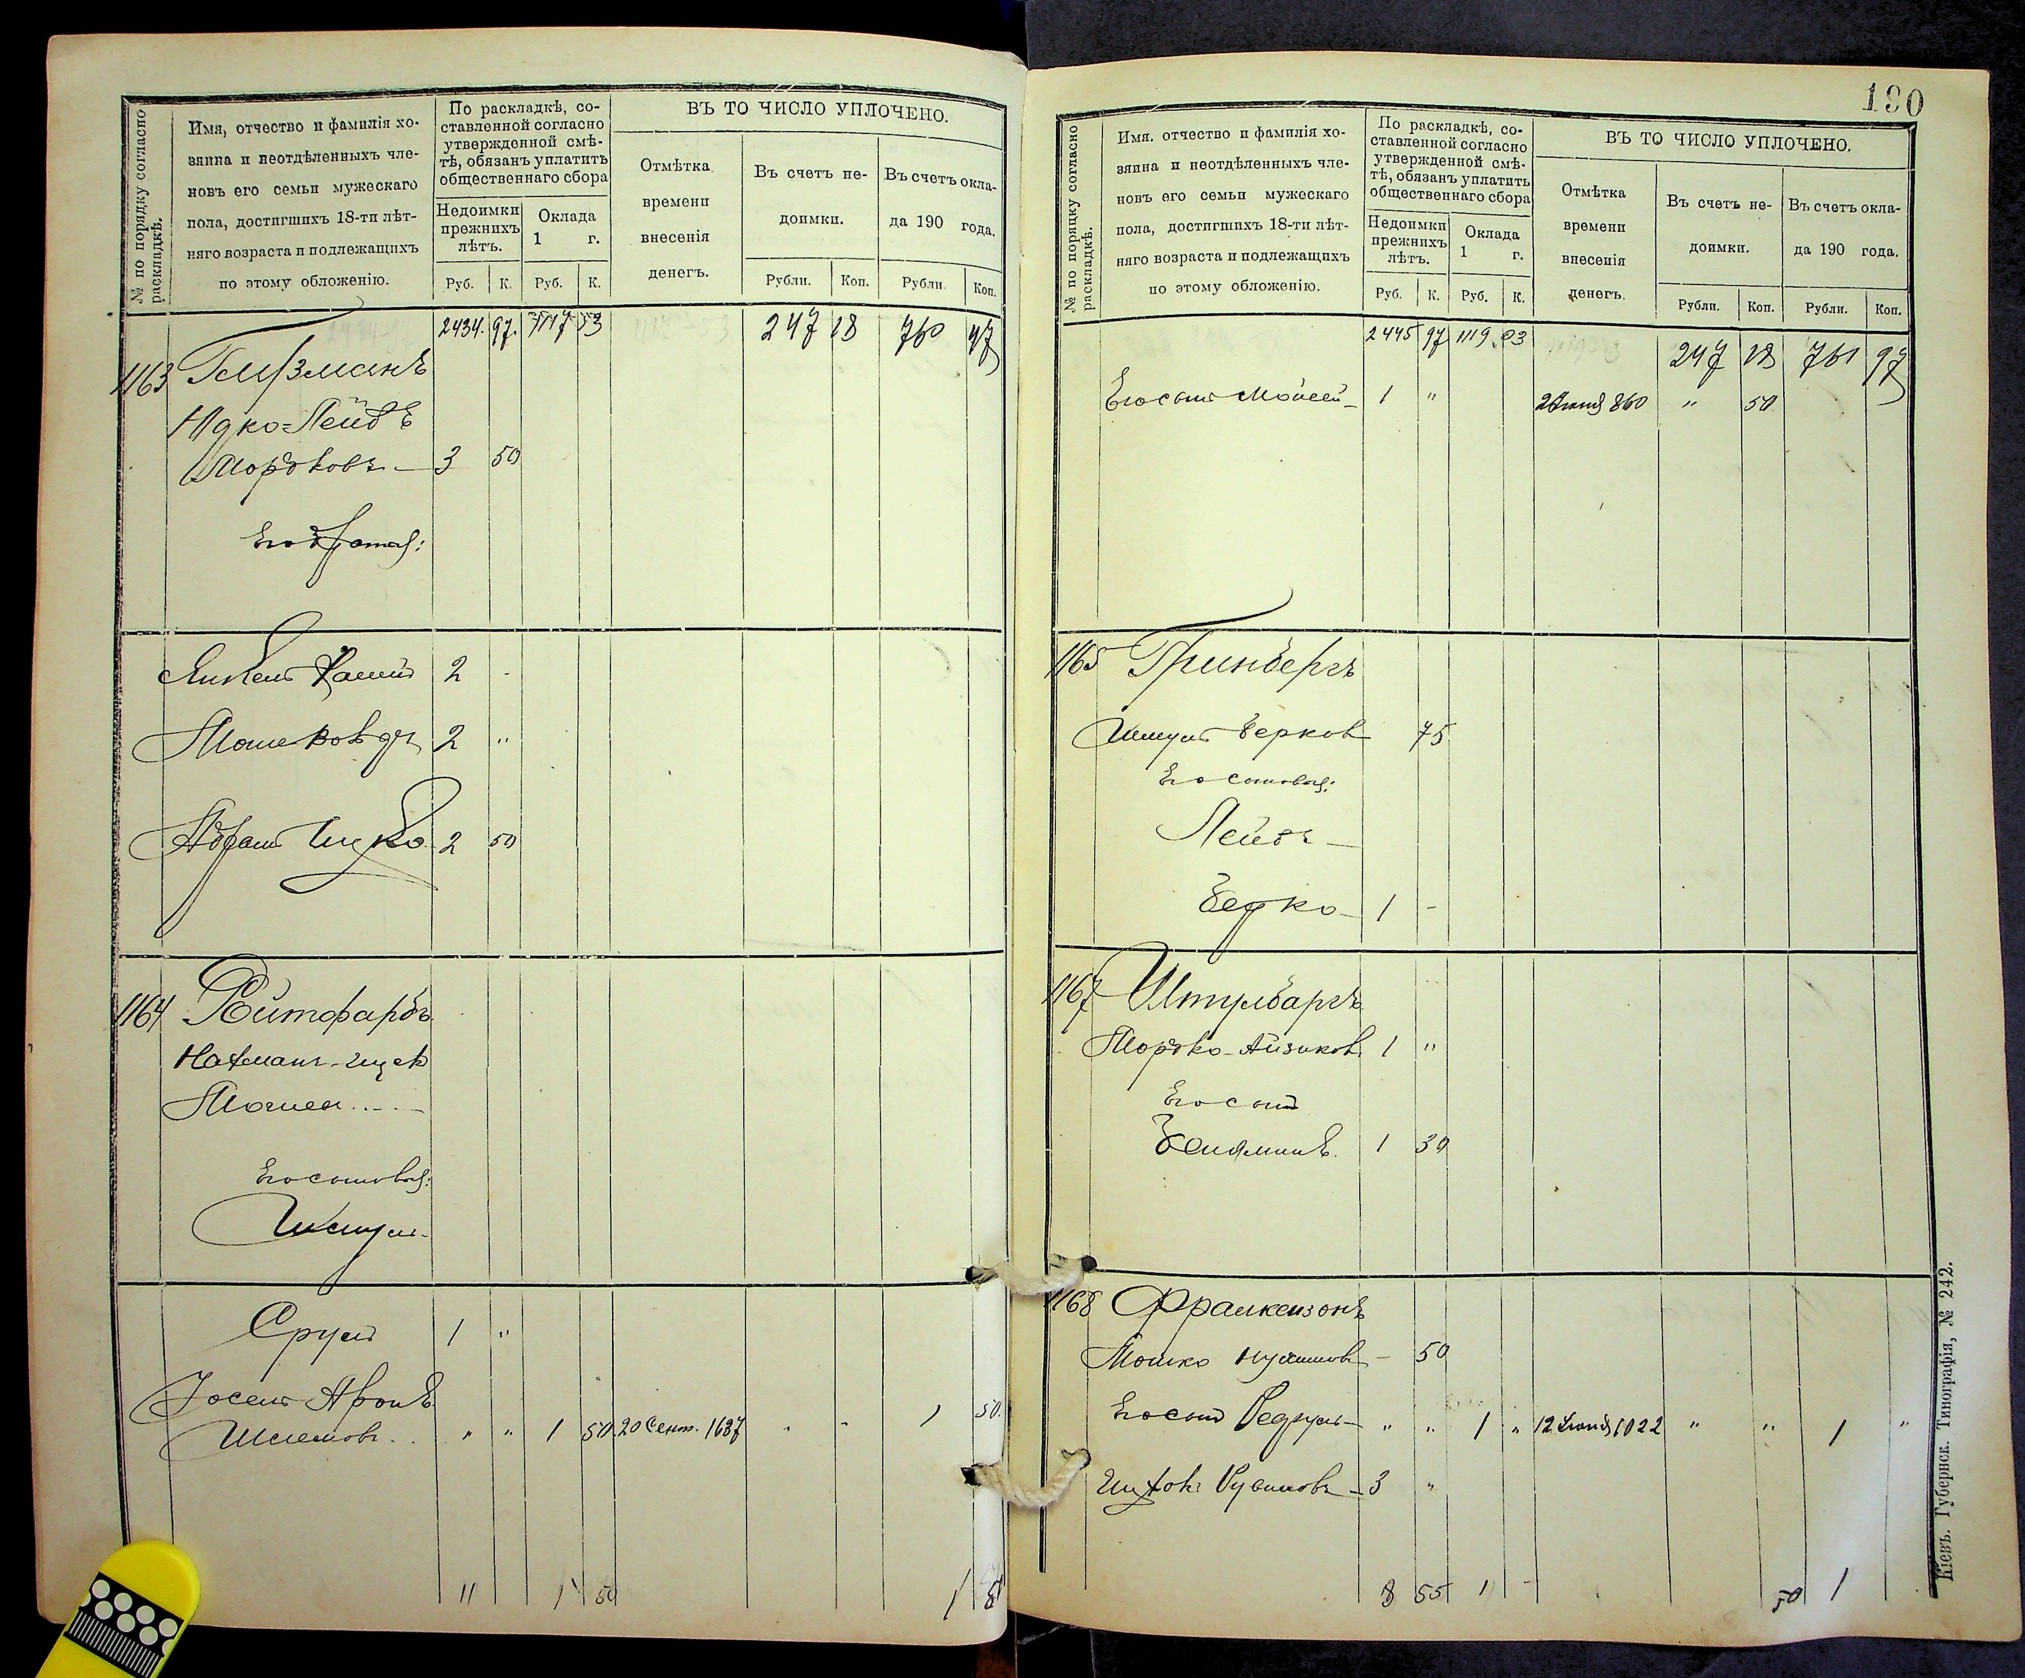 № по порядку согласно раскладкѣ.
Имя, отчество и фамилія хо-
зяина и неотдѣленныхъ чле-
новъ его семьи мужескаго
пола, достигшихъ 18-ти лѣт-
няго возраста и подлежащихъ
по этому обложенію.
По раскладкѣ, со-
ставленной согласно
утвержденной смѣ-
тѣ, обязанъ уплатить
общественнаго сбора
Недоимки прежнихъ лѣтъ.
Оклада 1 г.
Руб. К. Руб. К.
ВЪ ТО ЧИСЛО УПЛОЧЕНО.
Отмѣтка времени внесенія денегъ.
Въ счетъ не-
доимки.
Въ счетъ окла-
да 190 года.
Рубли. Коп. Рубли. Коп.
2434. 97. 1117 53 247 18 760 47
1163
Ицко-Лейбъ
Мордковъ 3 50
Его братья:
Янкель 2 -
Мошко 2 "
Абрамъ Ицко 2 50
1164 Ройтфарбъ
Нахманъ-Ицекъ
Его сыновья:
Шмуль
Сруль 1 "
Іосель Аронъ
Шлемовъ " " 1 50 20 Сент. 1637 " " 1 50.
11 1 50 1 50
190
№ по порядку согласно раскладкѣ.
Имя, отчество и фамилія хо-
зяина и неотдѣленныхъ чле-
новъ его семьи мужескаго
пола, достигшихъ 18-ти лѣт-
няго возраста и подлежащихъ
по этому обложенію.
По раскладкѣ, со-
ставленной согласно
утвержденной смѣ-
тѣ, обязанъ уплатить
общественнаго сбора
Недоимки прежнихъ лѣтъ.
Оклада 1 г.
Руб. К. Руб. К.
ВЪ ТО ЧИСЛО УПЛОЧЕНО.
Отмѣтка времени внесенія денегъ.
Въ счетъ не-
доимки.
Въ счетъ окла-
да 190 года.
Рубли. Коп. Рубли. Коп.
2445 97 1119 03 247 18 761 97
Его сынъ Мойсей 1 " 2 Іюня 860 " 50
1165 Гринбергъ
Шмуль Берковъ 75
Его сыновья:
Лейбъ
Берко 1 -
1167 Штульбаргъ
Мордко-Айзиковъ 1 "
Его сынъ
Беняминъ. 1 30
1168 Франкензонъ
Мошко 50
Его сынъ " " 1 " 12 Іюня 1022 " " 1 "
Рувиновъ 3 "
8 55 1 - 50 1
Кіевъ. Губернск. Типографія, № 242.